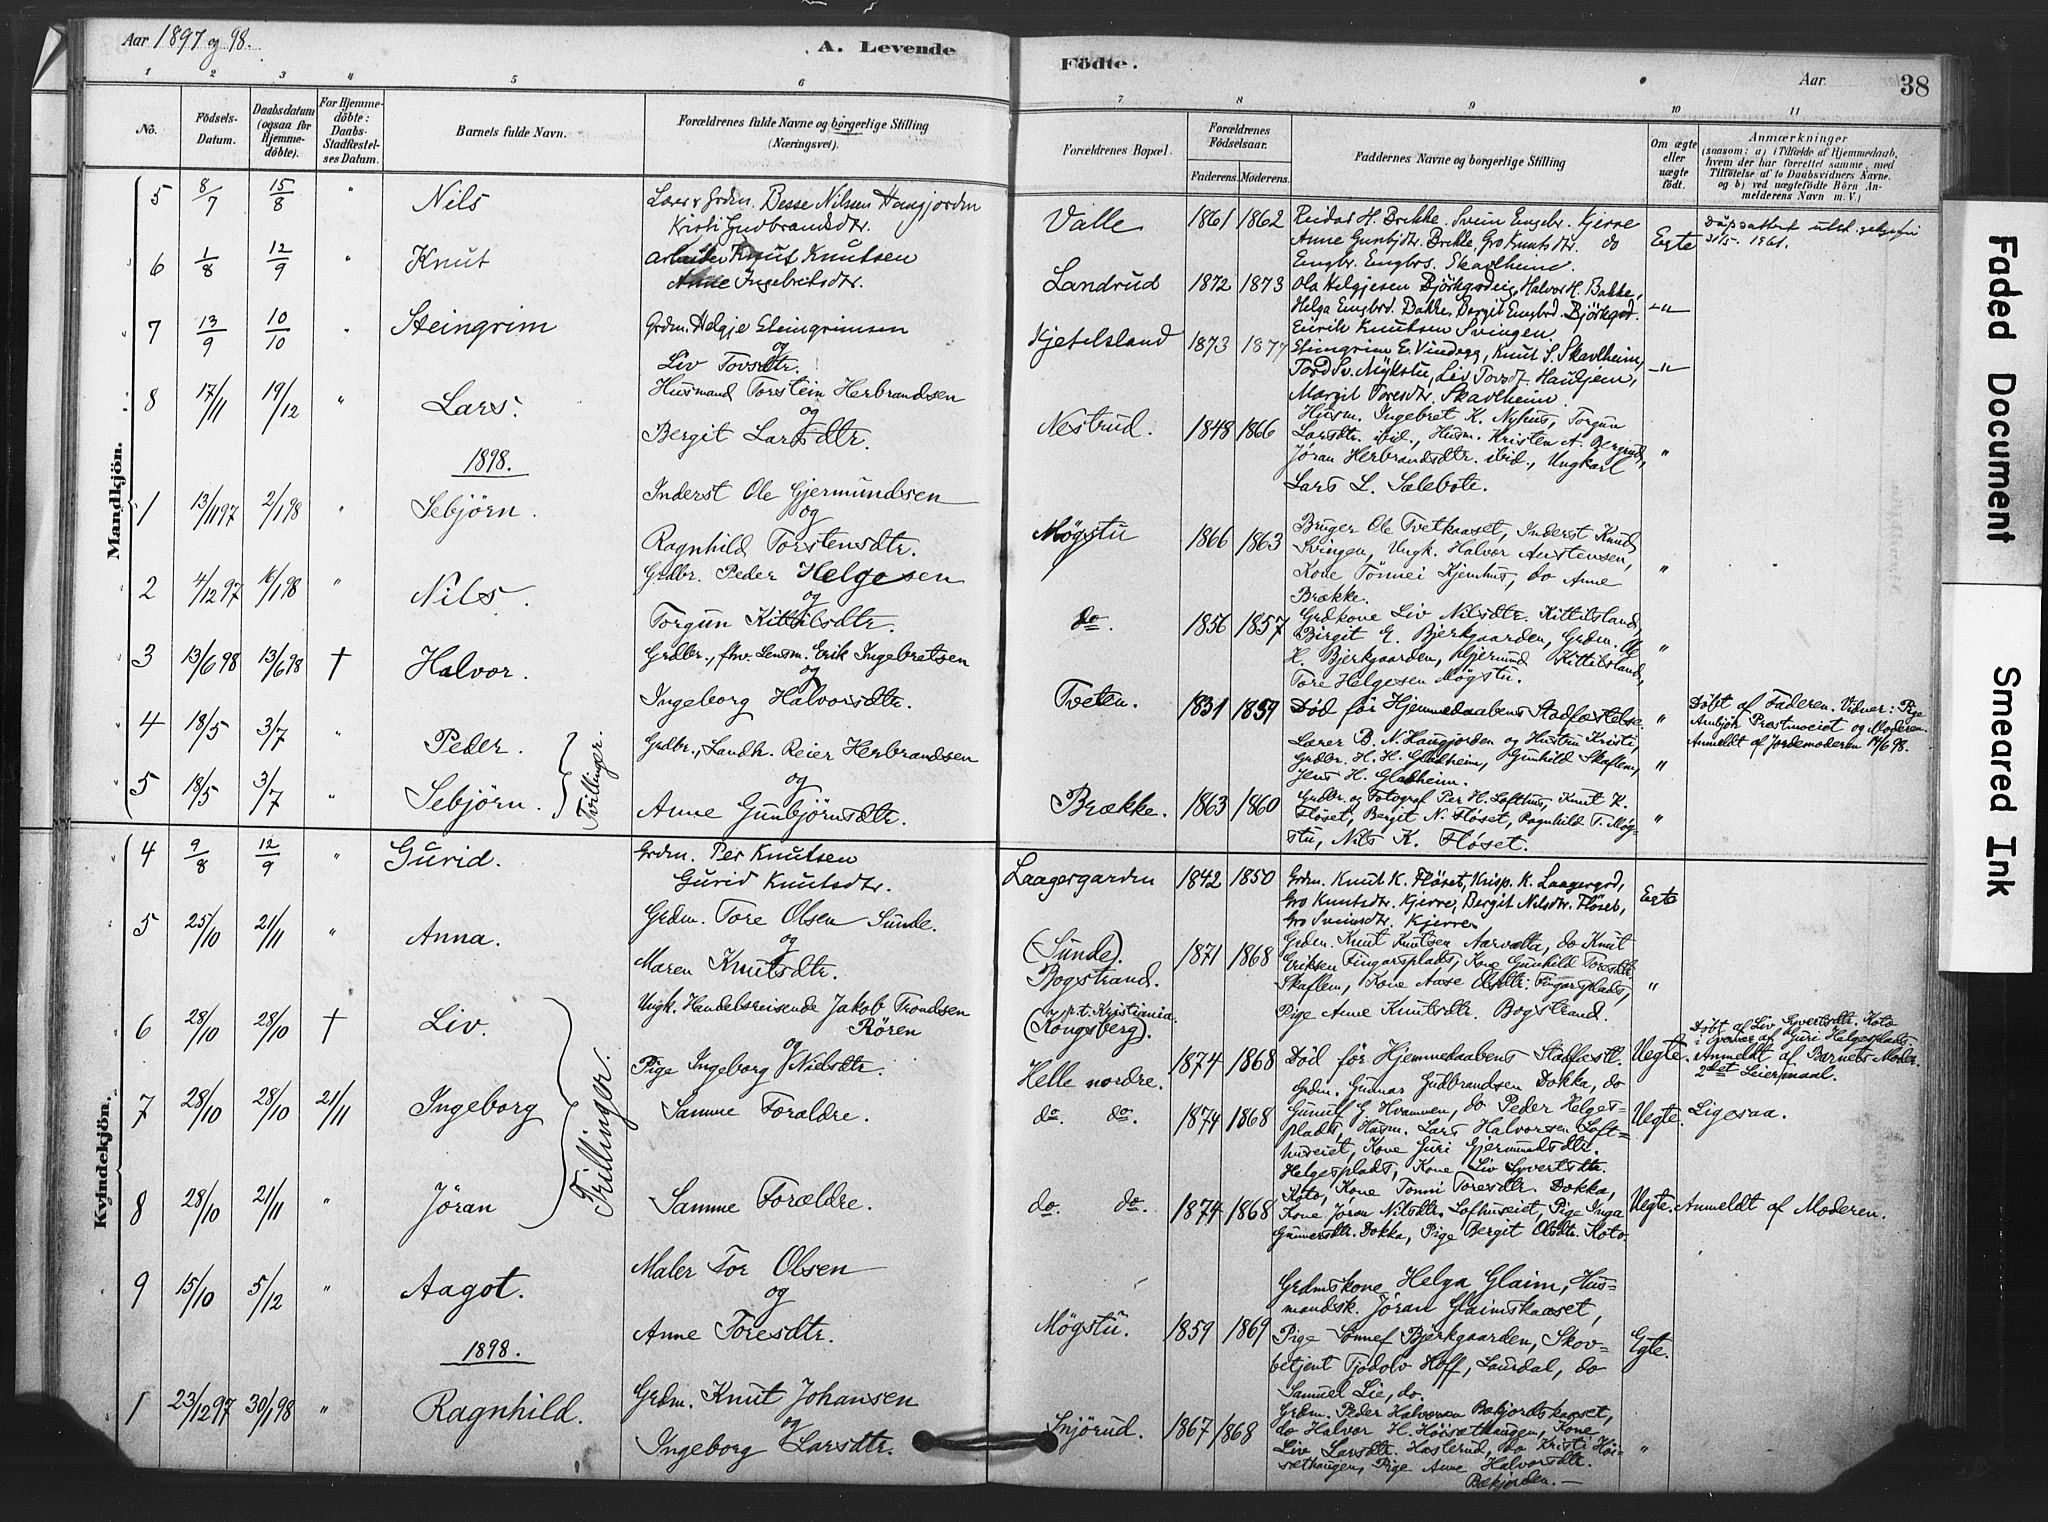 Aar 1897 og 98.
A. Levende
Födte.
Aar
38
1 2 3 " 5 6 7 8 9 10 11
No.
Födsels-Datum.
Daabsdatum (ogsaa for Hjemme-döbte).
For Hjemme-döbte: Daabs-Stadfæstel-ses Datum.
Barnets fulde Navn.
Forældrenes fulde Navne og borgerlige Stilling (Næringsvei).
Forældrenes Bopæl.
Forældrenes Födselsaar.
Faderens. Moderens.
Faddernes Navne og borgerlige Stilling
Om ægte eller uægte födt.
Anmærkninger
(saasom: a) i Tilfælde af Hjemmedaab, hvem der har forrettet samme, med Tilföielse af to Daabsvidners Navne. og b) ved uægtefödte Börn An-melderens Navn m. V.)
Mandkjön.
5 8/7 15/8 " Nils
Lærer & Grdm. Besse Nilsen Haugjorden
Kristi Gudbrandsdtr.
Valle 1861 1862
Reidar H. Brekke. Svein Engbr. Kjerre
Anne Gunbjdtr. Brekke, Gro Knutsdtr. do
Engbr. Engbrs. Skavlheim.
Egte
6 1/8 12/9 " Knut
Arbeider Knut Knutsen
Anne Ingebritsdtr.
Landrud 1872 1873
Ola Helgjesen Björkgardeig, Halvor H. Bakke,
Helga Engbrd. Bakke, Bergit Engbrd. Björkgrd.
Eirik Knutsen Svingen.
7 13/9 10/10 " Steingrim
Grdm. Helgje Steingrimsen
og
Liv Tovsdtr.
Kjetilsland 1873 1877
Steingrim E. Vindegg, Knut S. Skavlheim,
Tord Sv. Mykstu, Liv Torsdt. Haugjem,
Margit Toresdtr. Skavlheim.
8 17/11 19/12 " Lars.
Husmand Torstein Herbrandsen
og
Bergit Larsdtr.
Nestrud. 1848 1866
Husm. Ingebret K. Nyhus, Torgun
Larsdtr. ibid., Husm. Kristen A. Bergrud,
Jøran Herbrandsdtr. ibid., Ungkarl
Lars L. Salebote.
1898.
1 13/11 97 2/1 98 " Sebjörn.
Inderst Ole Gjermundsen
og
Ragnhild Torstensdtr.
Møgstu 1866 1863
Bruger Ole Tvetkaaset, Inderst Knud
Svingen, Ungk. Halvor Austensen,
Kone Tönnei Kjemhus, do Anne
Brække.
2 4/12 97 16/1 98 " Nils.
Grdbr. Peder Helgesen
og
Torgun Kittilsdtr.
do. 1856 1857
Grdkone Liv Nilsdtr. Kittilsland,
Birgit E. Bjerkgaarden, Grdm. Ole
H. Bjerkgaarden, Gjermund Kittilsland,
Tore Helgesen Møgstu.
3 13/6 98 13/6 98 † Halvor.
Grdbr., fhv. Lensm. Erik Ingebretsen
og
Ingeborg Halvorsdtr.
Tveten. 1831 1859
Död før Hjemmedaabens Stadfæstelse.
Døbt af Faderen. Vidner: Pige
Ambjør Prestmoeiet og Moderen.
Anmeldt af Jordemoderen 14/6 98.
4 18/5 3/7 " Peder.
5 18/5 3/7 " Sebjörn.
Tvillinger.
Grdbr., Landh. Reier Herbrandsen
og
Anne Gunbjörnsdtr.
Brække. 1863 1860
Lærer B. N. Haugjorden og Hustru Kristi,
Grdbr. H. H. Gladheim, Gunhild Skaflem,
Jens H. Gladheim.
Grdbr. og Fotograf Per H. Lofthus, Knut K.
Fløset, Bergit N. Fløset, Ragnhild T. Møg-
stu, Nils K. Fløset.
Kvindekjön.
4 9/8 12/9 " Gurid.
Grdm. Per Knutsen
Gurid Knutsdtr.
Laagergarden 1842 1850
Grdm. Knut K. Fløset, Krisp. K. Laagergrd,
Gro Knutsdtr. Kjerre, Bergit Nilsdtr. Fløset,
Gro Svinsdtr. Kjerre
Egte
5 25/10 21/11 " Anna.
Grdm. Tore Olsen Sunde.
og
Maren Knutsdtr.
(Sunde)
Bogstrand. 1871 1868
Grdm. Knut Knutsen Aarvelta, do Knut
Eriksen Fingarsplads, Kone Gunhild Toresdtr.
Skaflem, Kone Aase Olsdtr. Fingarsplads,
Pige Anne Knutsdtr. Bogstrand.
6 28/10 28/10 † Liv.
Ungk. Handelsreisende Jakob Trondsen
Rören
og
Pige Ingeborg Nielsdtr.
p. t. Kristiania.
(Kongsberg).
Helle nordre. 1874 1868
Død før Hjemmedaabens Stadfæstl.
Uegte.
Døbt af Liv Syvertsdtr. Koto
i Overvær af Guri Helgesplads
Anmeldt af Barnets Moder.
2det Leiermaal.
7 28/10 28/10 21/11 Ingeborg
Trillinger.
Samme Forældre.
do. do. 1874 1868
Grdm. Gunnar Gudbrandsen Dokka, do
Gunulf G. Hvammen, do Peder Helges-
plads, Husm. Lars Halvorsen Loft-
huseiet, Kone Juri Gjermundsdtr.
Helgesplads, Kone Liv Syvertsdtr.
Uegte. Ligesaa.
8 28/10 21/11 " Jöran
Samme Forældre.
do. do. 1874 1868
Koto, Kone Tönni Toresdtr. Dokka,
Kone Jøran Nilsdtr. Lofthuseiet, Pige Inga
Gunnersdtr. Dokka, Pige Bergit Olsdtr. Koto.
Uegte. Anmeldt af Moderen.
9 15/10 5/12 " Aagot.
Maler Tor Olsen
og
Anne Toresdtr.
Møgstu. 1859 1869
Grdmskone Helga Glaim, Hus-
mandsk. Jøran Glaimskaaset,
Pige Sönnef Bjerkgaarden, Skov-
betjent Tjodolv Hoff, Laurdal, do
Samuel Lie, do.
Egte.
1898.
1 23/12 97 30/1 98 " Ragnhild.
Grdm. Knut Johansen
og
Ingeborg Larsdtr.
Snjörud. 1867 1868
Grdm. Peder Halvorsen Bækjordskaaset,
do Halvor H. Høisæthaugen, Kone
Liv Larsdtr. Haslerud, do Kristi Høi-
sæthaugen, Pige Anne Halvorsdtr.
Bækjorden. —
Faded Document
Smeared Ink